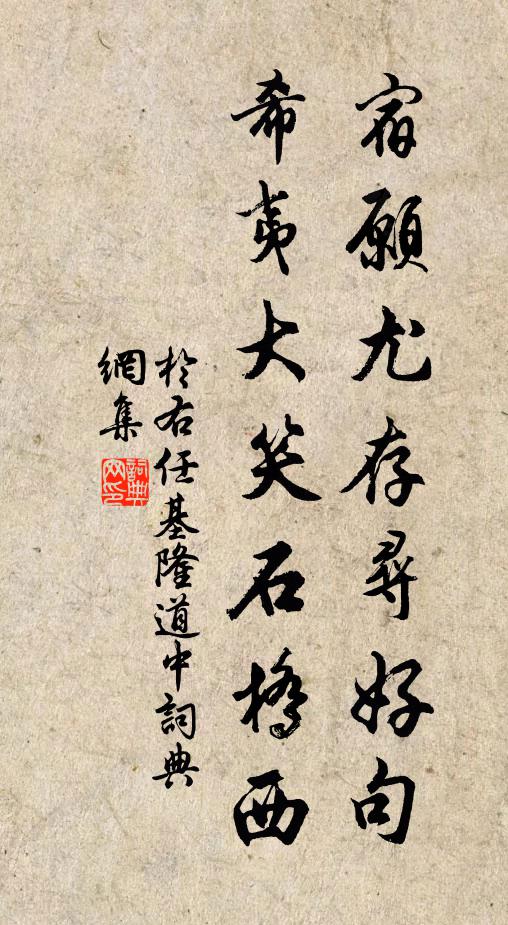 宿願尤存尋好句
希夷大笑石橋西
於右任基隆道中詞典
網集
詞典網印